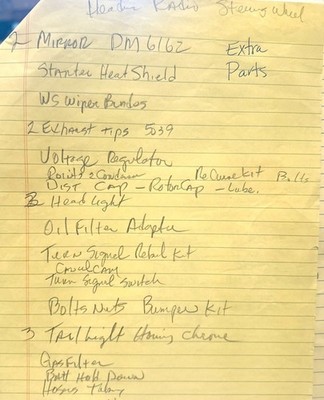 Header Radio Steering Wheel
2 Mirror DM6162 Extra
Starter Heat Shield Parts
WS Wiper Blades
2 Exhaust Tips 5039
Voltage Regulator
Points 2 Conden Kit Bolts
Dist Cap - Rotor Cap - Lube.
Head Light
Oil Filter Adapter
Turn Signal Rebuil Kit
Turn Signal Switch
Bolts Nuts Bumper Kit
3 Tail Light Chrome
Gas Filter
Batt Hold Down
Hoses